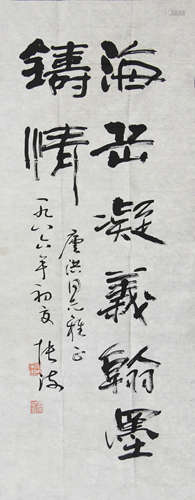 海岳凝義翰墨
鑄情
同志雅正
一九八六年初夏